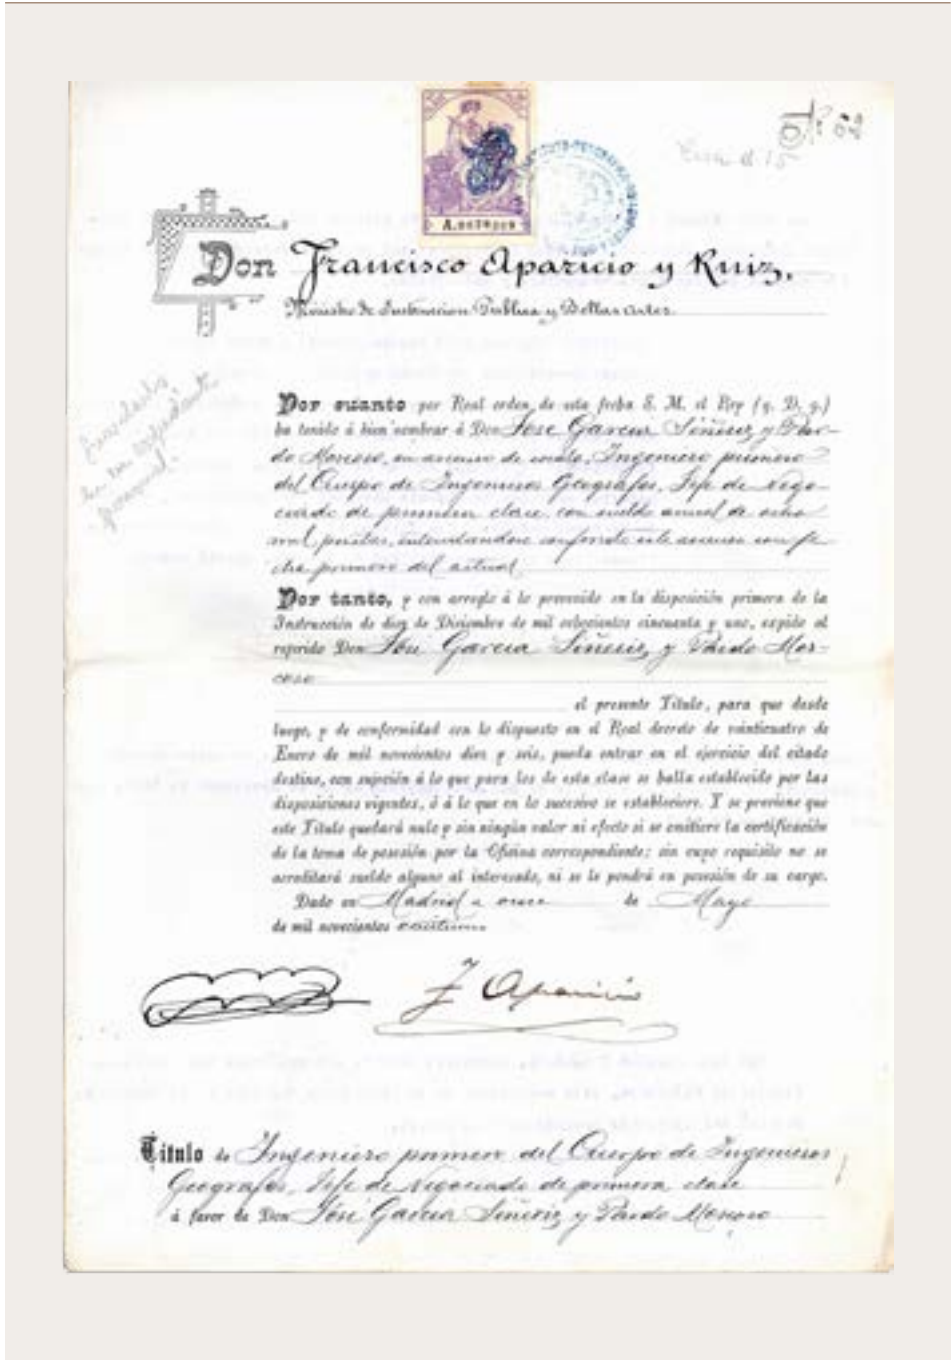 Don Francisco Aparicio y Ruiz,
Ministro de Instruccion Publica y Bellas Artes
Por cuanto por Real orden de esta fecha S. M. el Rey (q. D. g.)
ha tenido á bien nombrar á Don José Garcia Siñeriz y Par-
do Moscoso, en ascenso de escala, Ingeniero primero
del Cuerpo de Ingenieros Geografos, Jefe de Nego-
ciado de primera clase, con sueldo anual de ocho
mil pesetas, entendiendose conferido este ascenso con fe-
cha primero del actual
Por tanto, y con arreglo á lo prevenido en la disposición primera de la
Instrucción de diez de Diciembre de mil ochocientos cincuenta y uno, expido al
referido Don José Garcia Siñeriz y Pardo Mos-
coso
el presente Título, para que desde
luego, y de conformidad con lo dispuesto en el Real decreto de veinticuatro de
Enero de mil novecientos diez y seis, pueda entrar en el ejercicio del citado
destino, con sujeción á lo que para los de esta clase se halla establecido por las
disposiciones vigentes, ó á lo que en lo sucesivo se estableciere. Y se previene que
este Título quedará nulo y sin ningún valor ni efecto si se omitiere la certificación
de la toma de posesión por la Oficina correspondiente; sin cuyo requisito no se
acreditará sueldo alguno al interesado, ni se le pondrá en posesión de su cargo.
Dado en Madrid a once de Mayo
de mil novecientos veintiuno
F Aparicio
Título de Ingeniero primero del Cuerpo de Ingenieros
Geografos, Jefe de Negociado de primera clase
á favor de Don José Garcia Siñeriz y Pardo Moscoso